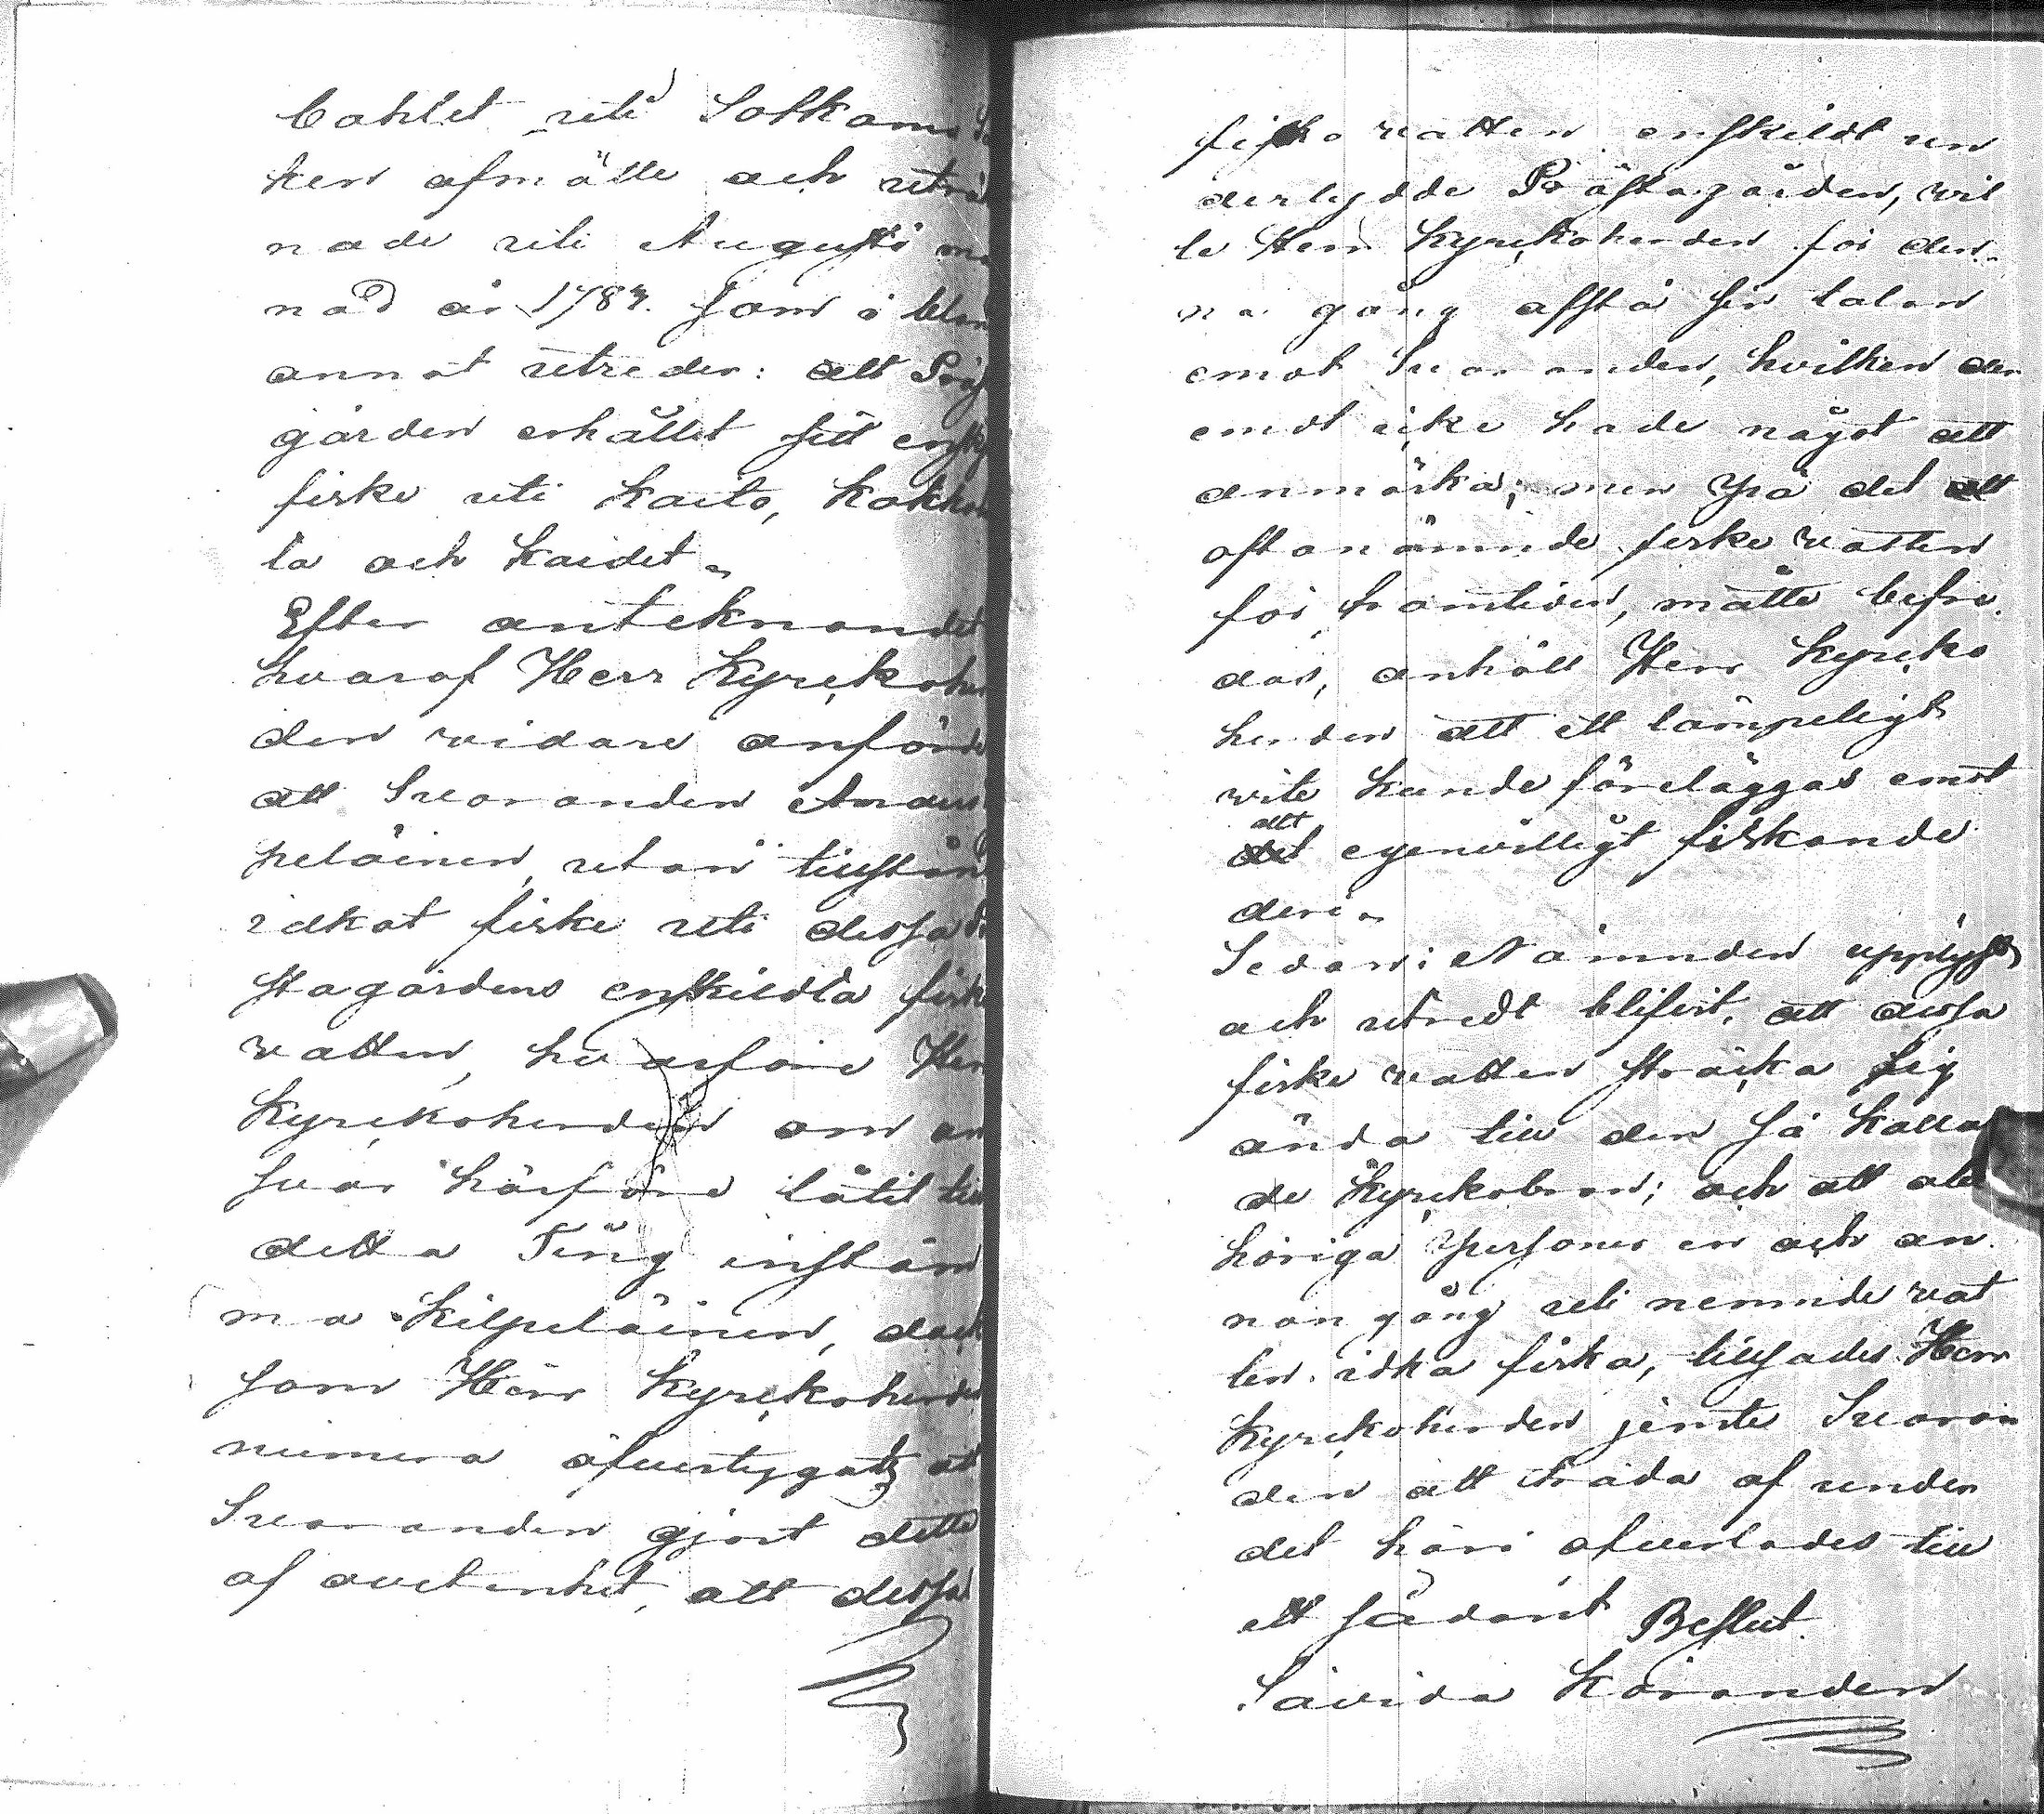 bohlet uti Sotkamo So
ken afmätte och utröi
nade uti Augusti må
nad år 1784. som i blan
annat utreder: att Präs
gården erhållet sitt ensk
fiske uti Kaito, Kokko
la och Kaidet.
Efter anteknandet
hvaraf Herr Kyrckoher
den widare anförde
att Svaranden And
peläinen utan tillstån
idkat fiske uti dessa Pr
stagårdens enskildta fisk
watten, hvarföre Her
Kyrckoherden om an
svar härföre låtit till
detta Ting instäm
ma Kilpeläinen, dock
som Herr Kyrckoherden
numera öfvertygats at
Svaranden gjort detta
af ovetenhet, att dessa
fiske watten enskildt un
derlydde Prästagården, wil
le Herr Kyrckoherden för den
na gång afstå sin talan
emot Svaranden, hvilken der
emot icke hade något att
anmärka; men på det att
oftanämnde fiske watten
för framtiden, måtte befre
das, anhöll Herr Kyrcko
herden att ett lämpeligt
wite kunde föreläggas emot
allt
det egenwilligt fiskande
deri.
Sedan i Nämnden upplyst
och utredt blifvit, att dessa
fiske watten sträcka sig
ända till den så kalla
de Kyrckobron; och att obe
höriga personer en och an
nan gång uti nemnde wat
ten idka fiska, tillsades Herr
Kyrckoherden jemte Svaran
den att träda af under
det häri öfverlades till
ett sådant Beslut.
Såvida Käranden